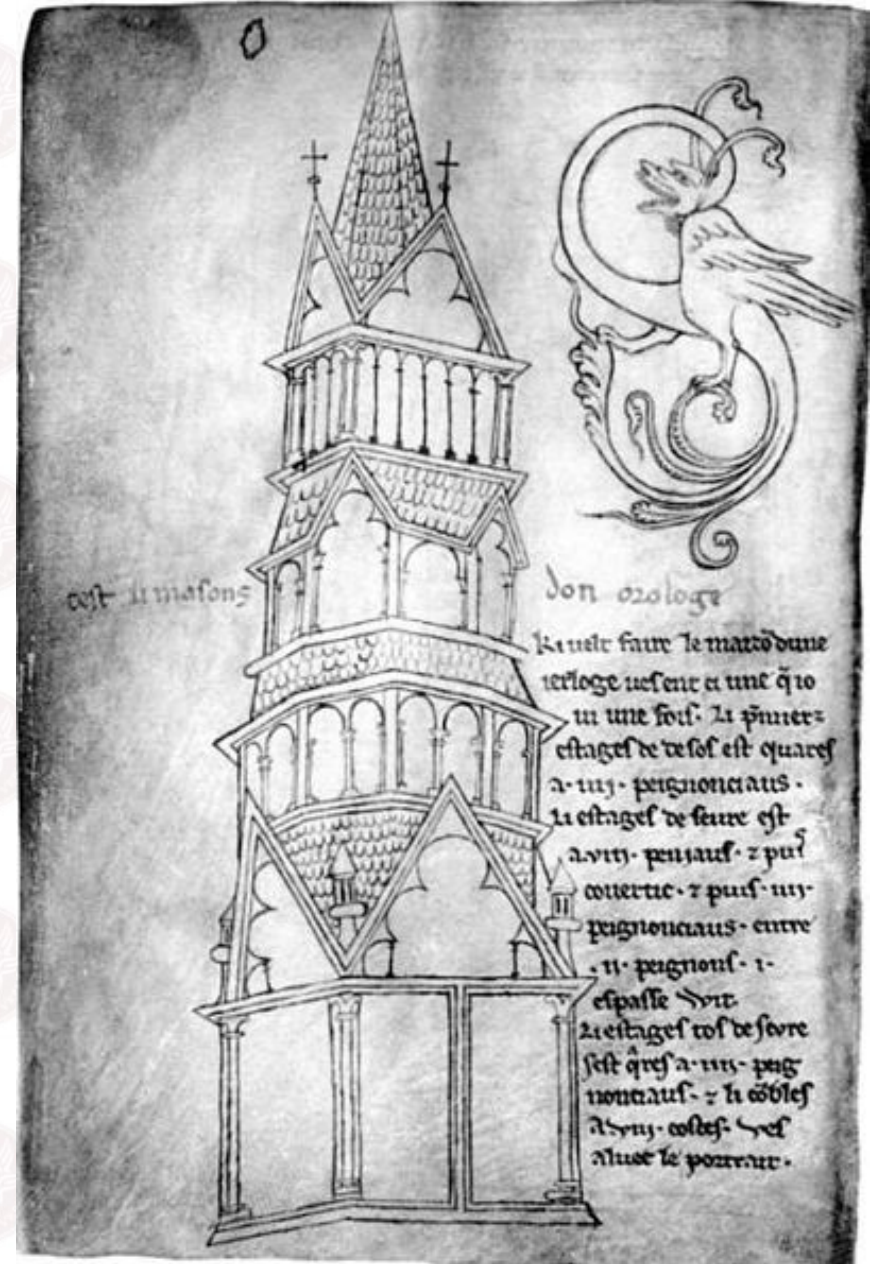 cest li masons don orologe
Ki velt faire le maizo dune
ierloge ves ent ci une q̃ io
vi une fois. Li p̃mierz
estages de desos est quares
a .iiij. peignonciaus.
Li estages de seure est
a .viij. peniaus. z puis
covertic. z puis .iiij.
peignonciaus. entre
.ii. peignons .i.
espasse wit.
Li estages tos de sevre
sest q̃res a .iiij. peig
nonciaus. z li cõbles
a .viij. costes. ves
aluec le portrait.